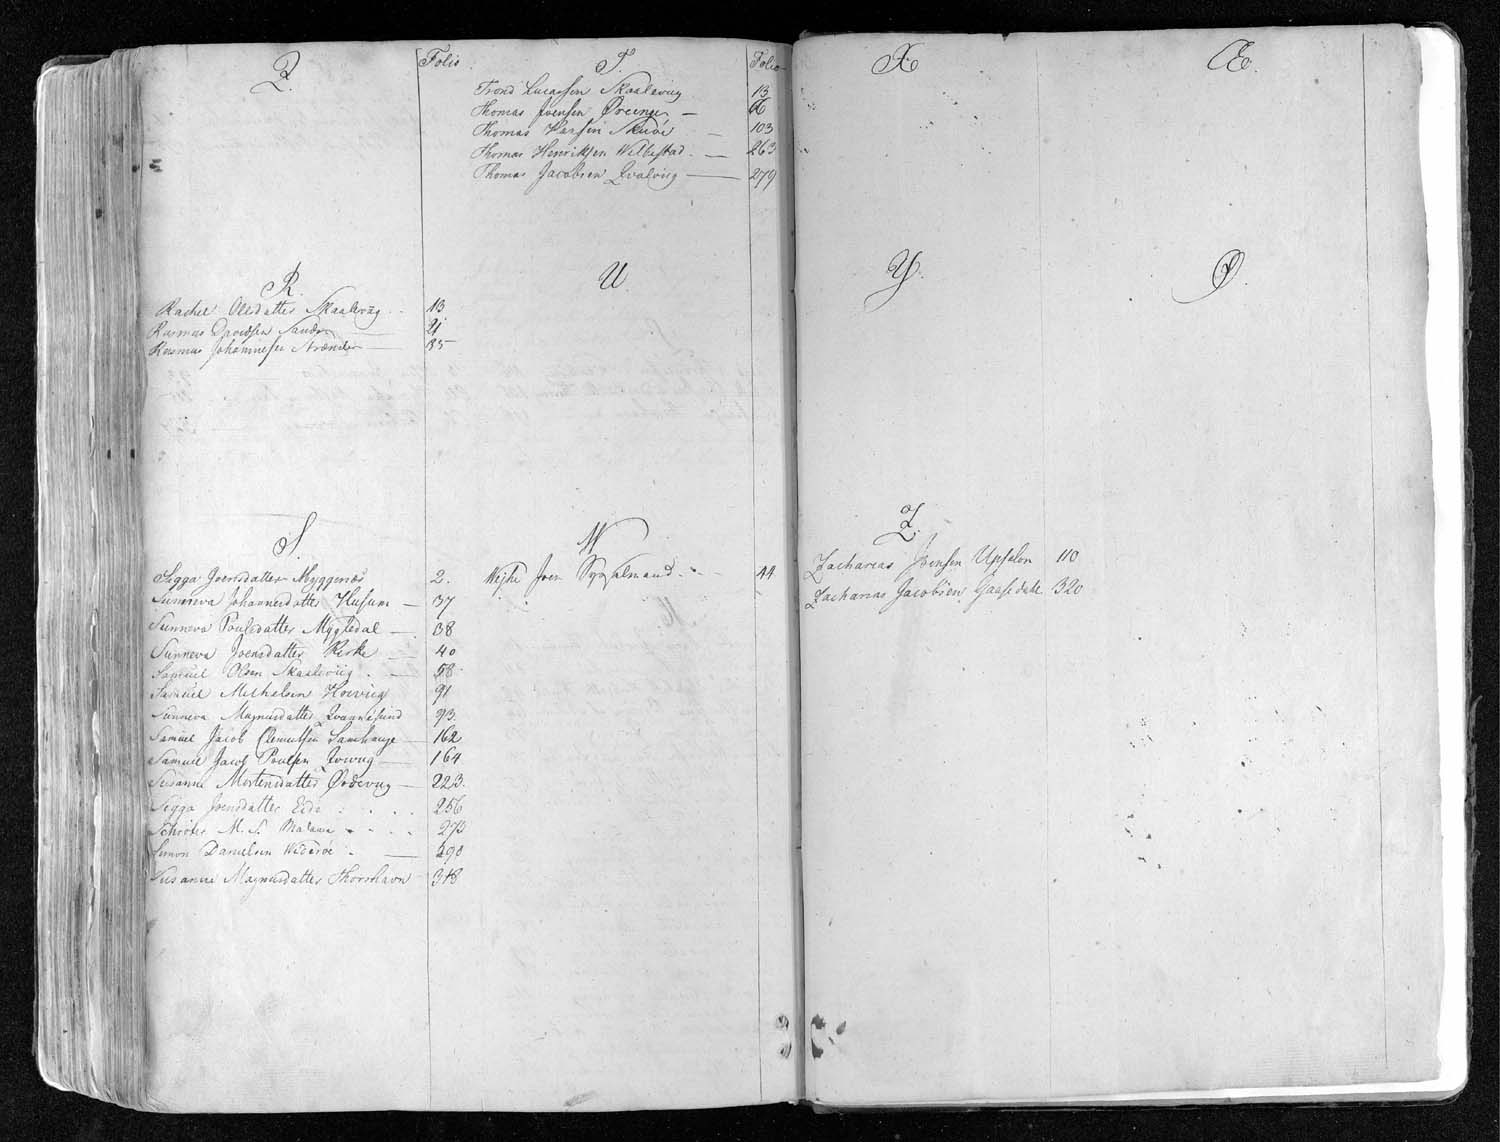 Q.
Folio
R.
Rachel Olesdatter Skaalevüg 13
Rasmus Davidsen Sandøe 21
Rasmus Johannesen 35
S.
Sigga Joensdatter Myggenæs 2.
Sunneva Johannesdatter Husum 37
Sunneva Poulsdatter Mygledal 38
Sunneva Joensdatter Kirke 40
Samuel Olsen Skaalevüig 58
Samuel Michelsen Hovvüg 91
Sunneva Magnusdatter Qvannesund 93.
Samuel Jacob Clemmetsen Lamhauge 162
Samuel Jacob Poulsen 164
Susanne Mortensdatter Ördevüg 223.
Sigga Joensdatter Eide 256
Schrøter M. S. 273
Simon Danielsen Widerøe 290
Susanne Magnusdatter Thorshavn 318
T
Folio
Trond Lucassen Skaalevüg 13
Thomas Joensen 66
Thomas Skuöe 103
Thomas Henriksen Welbestad 263
Thomas Jacobsen Qvalvüg 279
U.
W
Weyhe Joen Sysselmand 44
X.
Y.
Z.
Zacharias Joensen Upsalon 110
Zacharias Jacobsen Gaasedahl 320
Æ.
Ø.